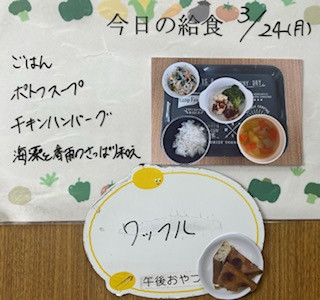 今日の給食 3/24(月)
ごはん
ポトフスープ
チキンハンバーグ
海藻と春雨のさっぱり和え
ワッフル
午後おやつ